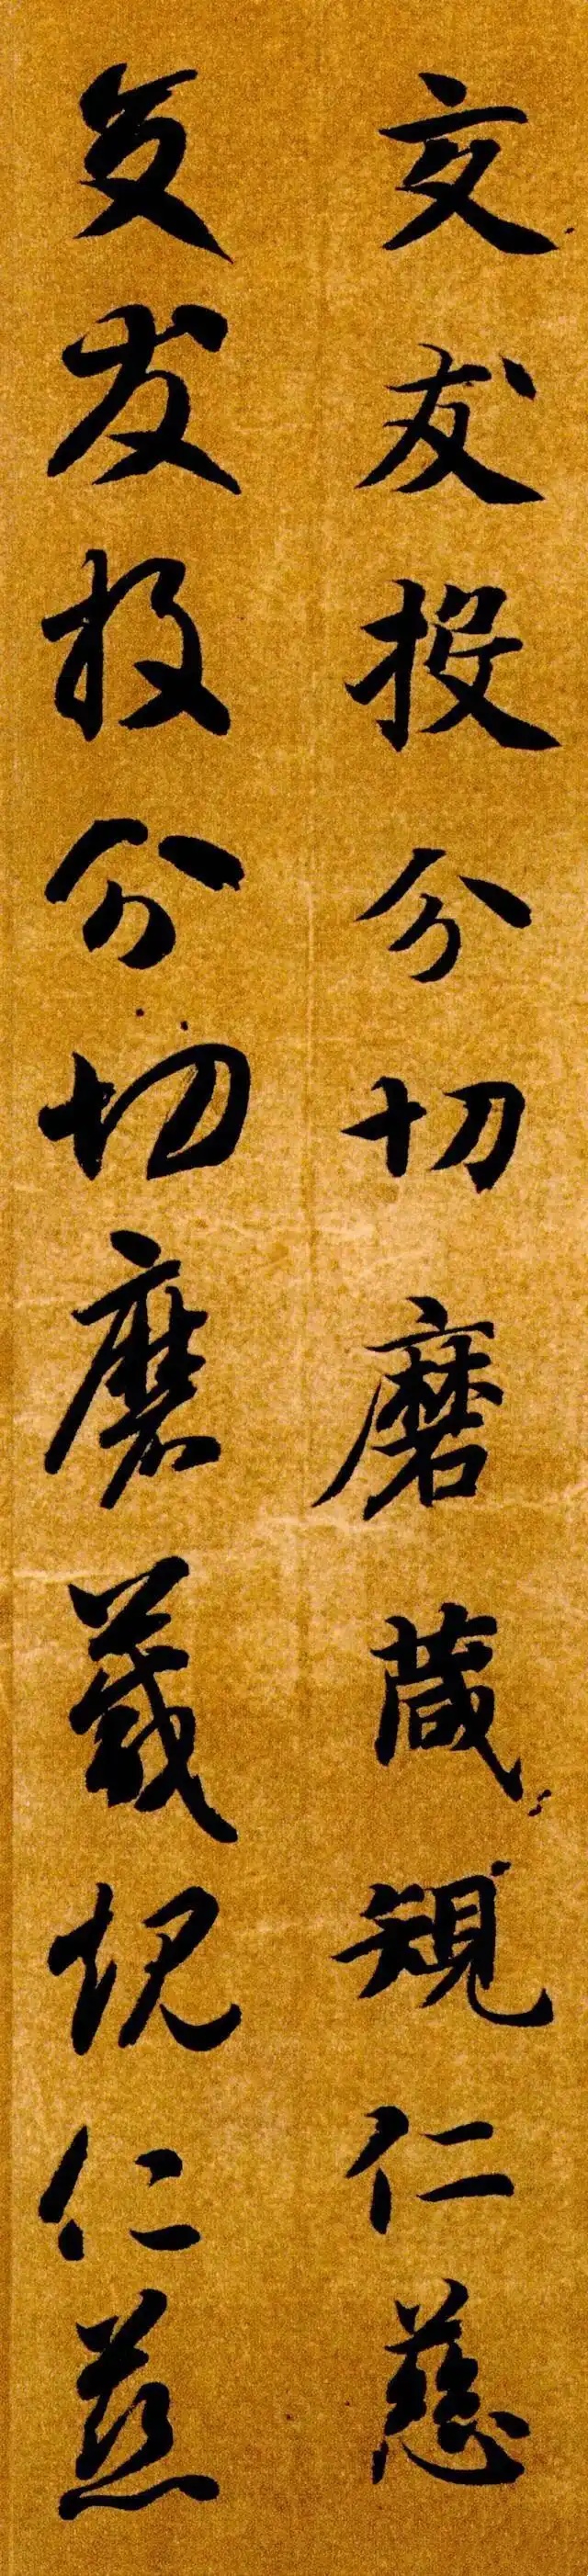 交友投分切磨箴規仁慈
交友投分切磨箴規仁慈